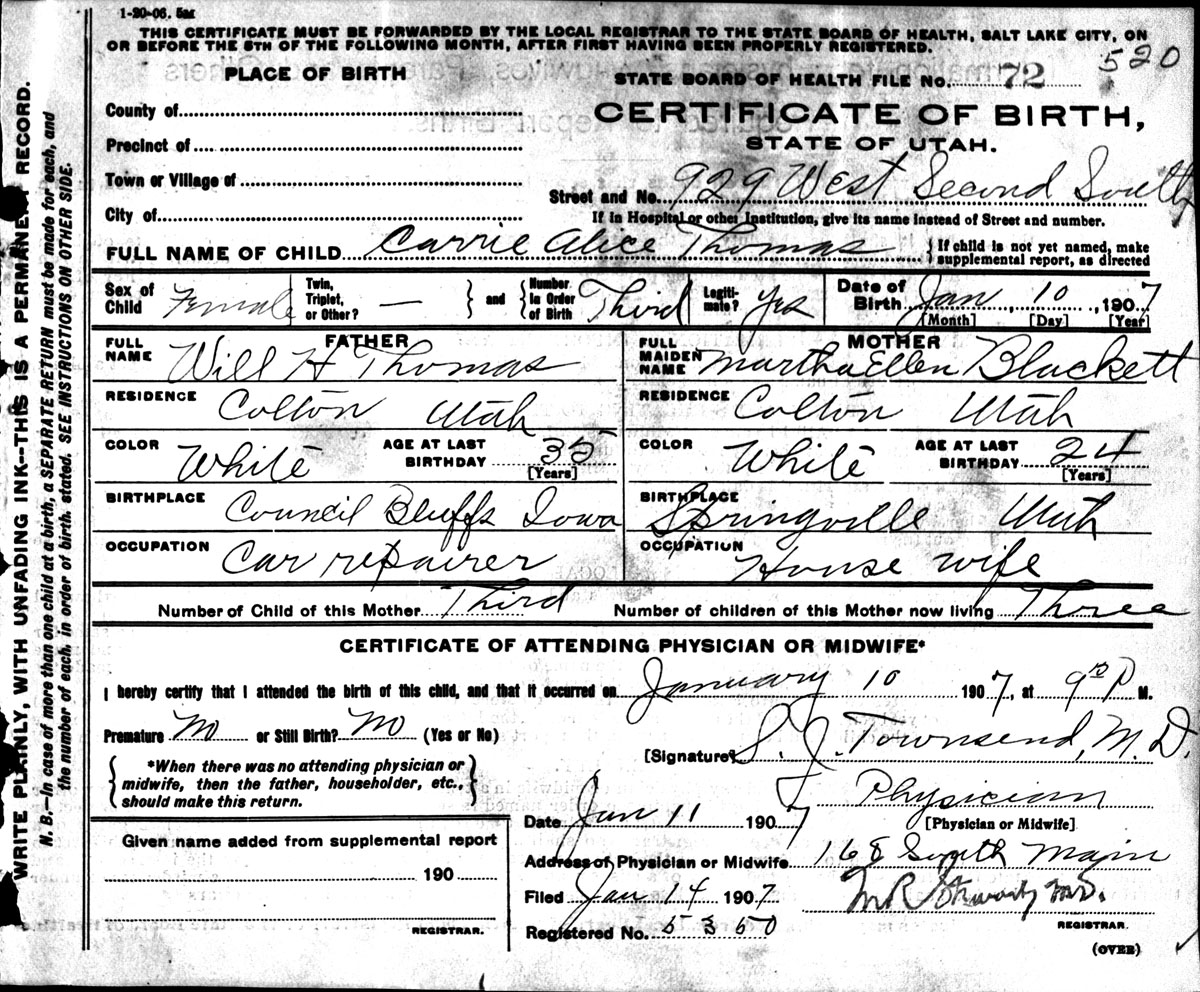 1-20-06. 5m
THIS CERTIFICATE MUST BE FORWARDED BY THE LOCAL REGISTRAR TO THE STATE BOARD OF HEALTH, SALT LAKE CITY, ON
OR BEFORE THE 5TH OF THE FOLLOWING MONTH, AFTER FIRST HAVING BEEN PROPERLY REGISTERED.
520
PLACE OF BIRTH
STATE BOARD OF HEALTH FILE No. 72
County of
CERTIFICATE OF BIRTH,
Precinct of
STATE OF UTAH.
Town or Village of
Street and No. 929 West Second South
City of
If in Hospital or other Institution, give its name instead of Street and number.
FULL NAME OF CHILD Carrie Alice Thomas
If child is not yet named, make
supplemental report, as directed
Sex of Child Female
Twin, Triplet, or Other? —
and
Number In Order of Birth Third
Legiti-mate? Yes
Date of Birth Jan 10, 1907
[Month] [Day] [Year]
FATHER
FULL NAME Will H Thomas
RESIDENCE Colton Utah
COLOR White
AGE AT LAST BIRTHDAY 35
[Years]
BIRTHPLACE Council Bluffs Iowa
OCCUPATION Car repairer
MOTHER
FULL MAIDEN NAME Martha Ellen Blackett
RESIDENCE Colton Utah
COLOR White
AGE AT LAST BIRTHDAY 24
[Years]
BIRTHPLACE Springville Utah
OCCUPATION House wife
Number of Child of this Mother Third
Number of children of this Mother now living Three
CERTIFICATE OF ATTENDING PHYSICIAN OR MIDWIFE*
I hereby certify that I attended the birth of this child, and that it occurred on January 10 1907, at 9 P M.
Premature No or Still Birth? No (Yes or No)
[Signature] S. J. Townsend, M.D.
*When there was no attending physician or
midwife, then the father, householder, etc.,
should make this return.
Physician
[Physician or Midwife]
Date Jan 11 1907
Given name added from supplemental report
190
REGISTRAR.
Address of Physician or Midwife 168 South Main
Filed Jan 14 1907
M.D.
Registered No. 5360
REGISTRAR.
(OVER)
WRITE PLAINLY, WITH UNFADING INK--THIS IS A PERMANENT RECORD.
N. B.--In case of more than one child at a birth, a SEPARATE RETURN must be made for each, and
the number of each, in order of birth, stated. SEE INSTRUCTIONS ON OTHER SIDE.